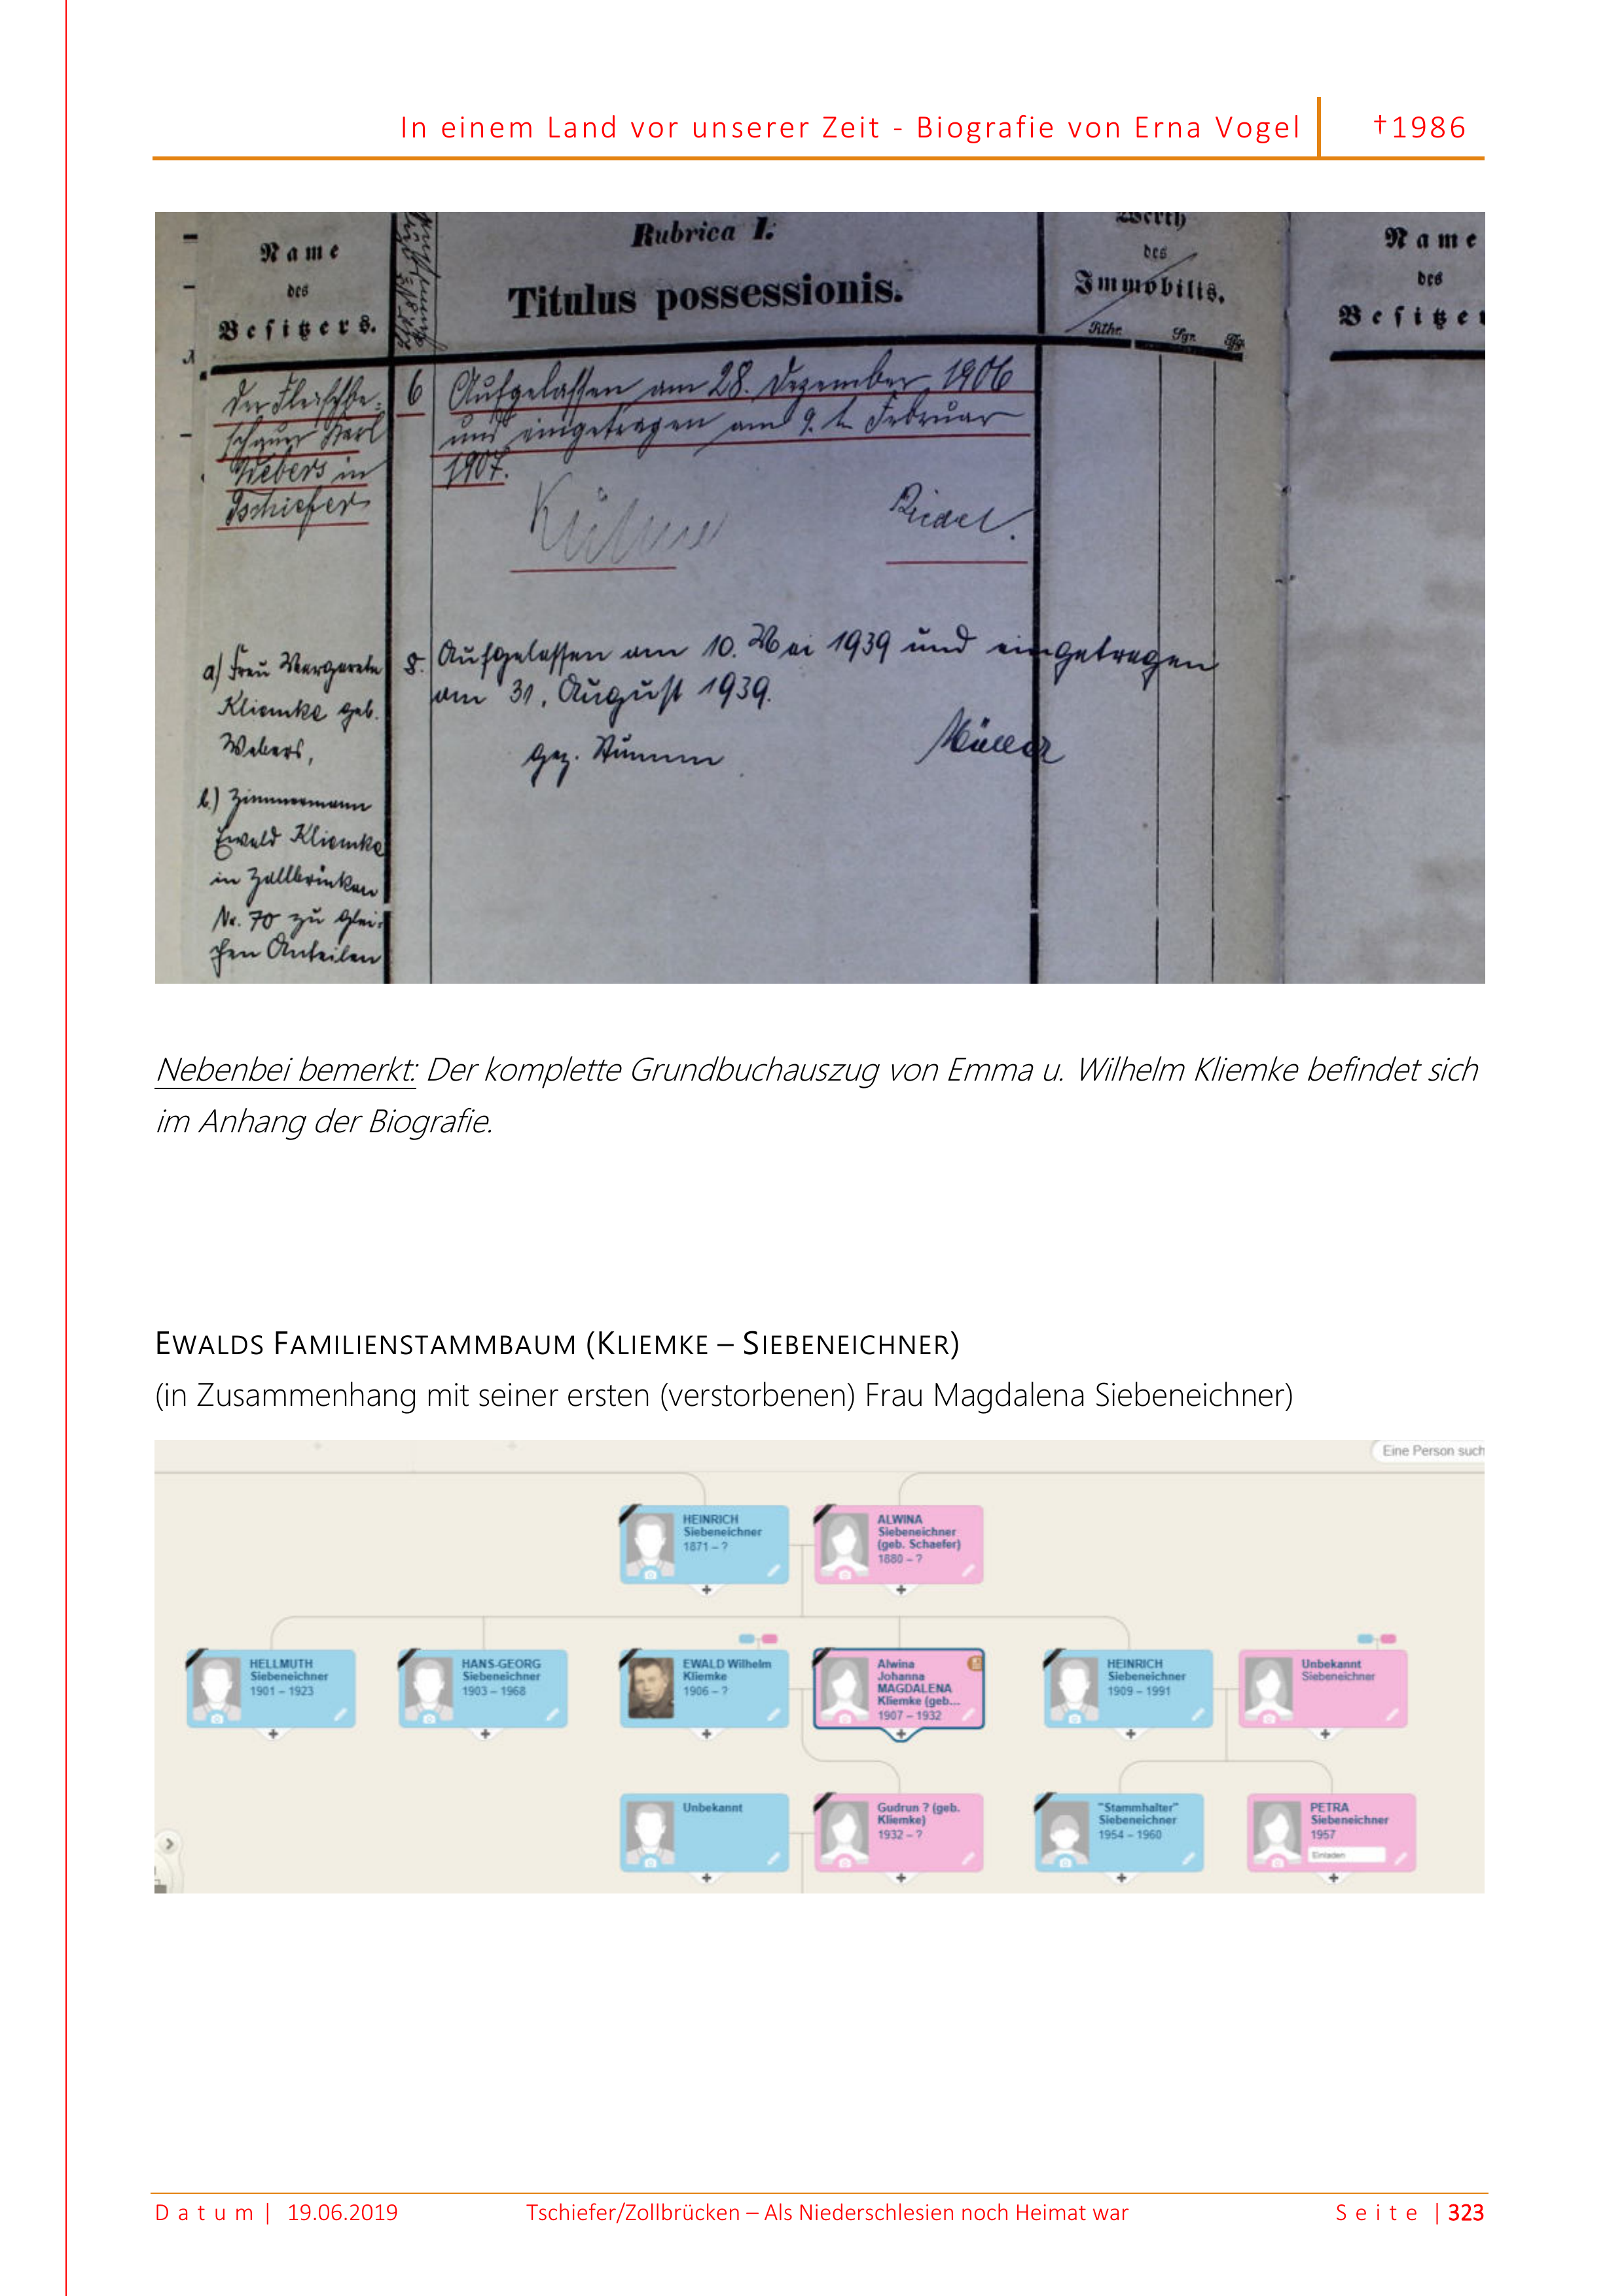 In einem Land vor unserer Zeit - Biografie von Erna Vogel
†1986
Name
des
Besitzers.
Rubrica I.
Titulus possessionis.
Werth
des
Immobilis.
Rthr.
Sgr.
Name
des
Besitzer
Der Fleischbe-
schauer Karl
Webers in
Tschiefer
6
Aufgelassen am 28. Dezember 1906
und eingetragen am 9. Februar
1907.
Riedel.
a) Frau Margarete
Kliemke geb.
Webers,
b.) Zimmermann
Ewald Kliemke
in Zollbrücken
Nr. 70 zu glei-
chen Anteilen
8.
Aufgelassen am 10. Mai 1939 und eingetragen
am 31. August 1939.
gez. Stumm
Müller
Nebenbei bemerkt: Der komplette Grundbuchauszug von Emma u. Wilhelm Kliemke befindet sich
im Anhang der Biografie.
EWALDS FAMILIENSTAMMBAUM (KLIEMKE – SIEBENEICHNER)
(in Zusammenhang mit seiner ersten (verstorbenen) Frau Magdalena Siebeneichner)
Eine Person such
HEINRICH
Siebeneichner
1871 – ?
ALWINA
Siebeneichner
(geb. Schaefer)
1880 – ?
HELLMUTH
Siebeneichner
1901 – 1923
HANS-GEORG
Siebeneichner
1903 – 1968
EWALD Wilhelm
Kliemke
1906 – ?
Alwina
Johanna
MAGDALENA
Kliemke (geb...
1907 – 1932
HEINRICH
Siebeneichner
1909 – 1991
Unbekannt
Siebeneichner
Unbekannt
Gudrun ? (geb.
Kliemke)
1932 – ?
"Stammhalter"
Siebeneichner
1954 – 1960
PETRA
Siebeneichner
1957
Einladen
Datum | 19.06.2019
Tschiefer/Zollbrücken – Als Niederschlesien noch Heimat war
Seite | 323